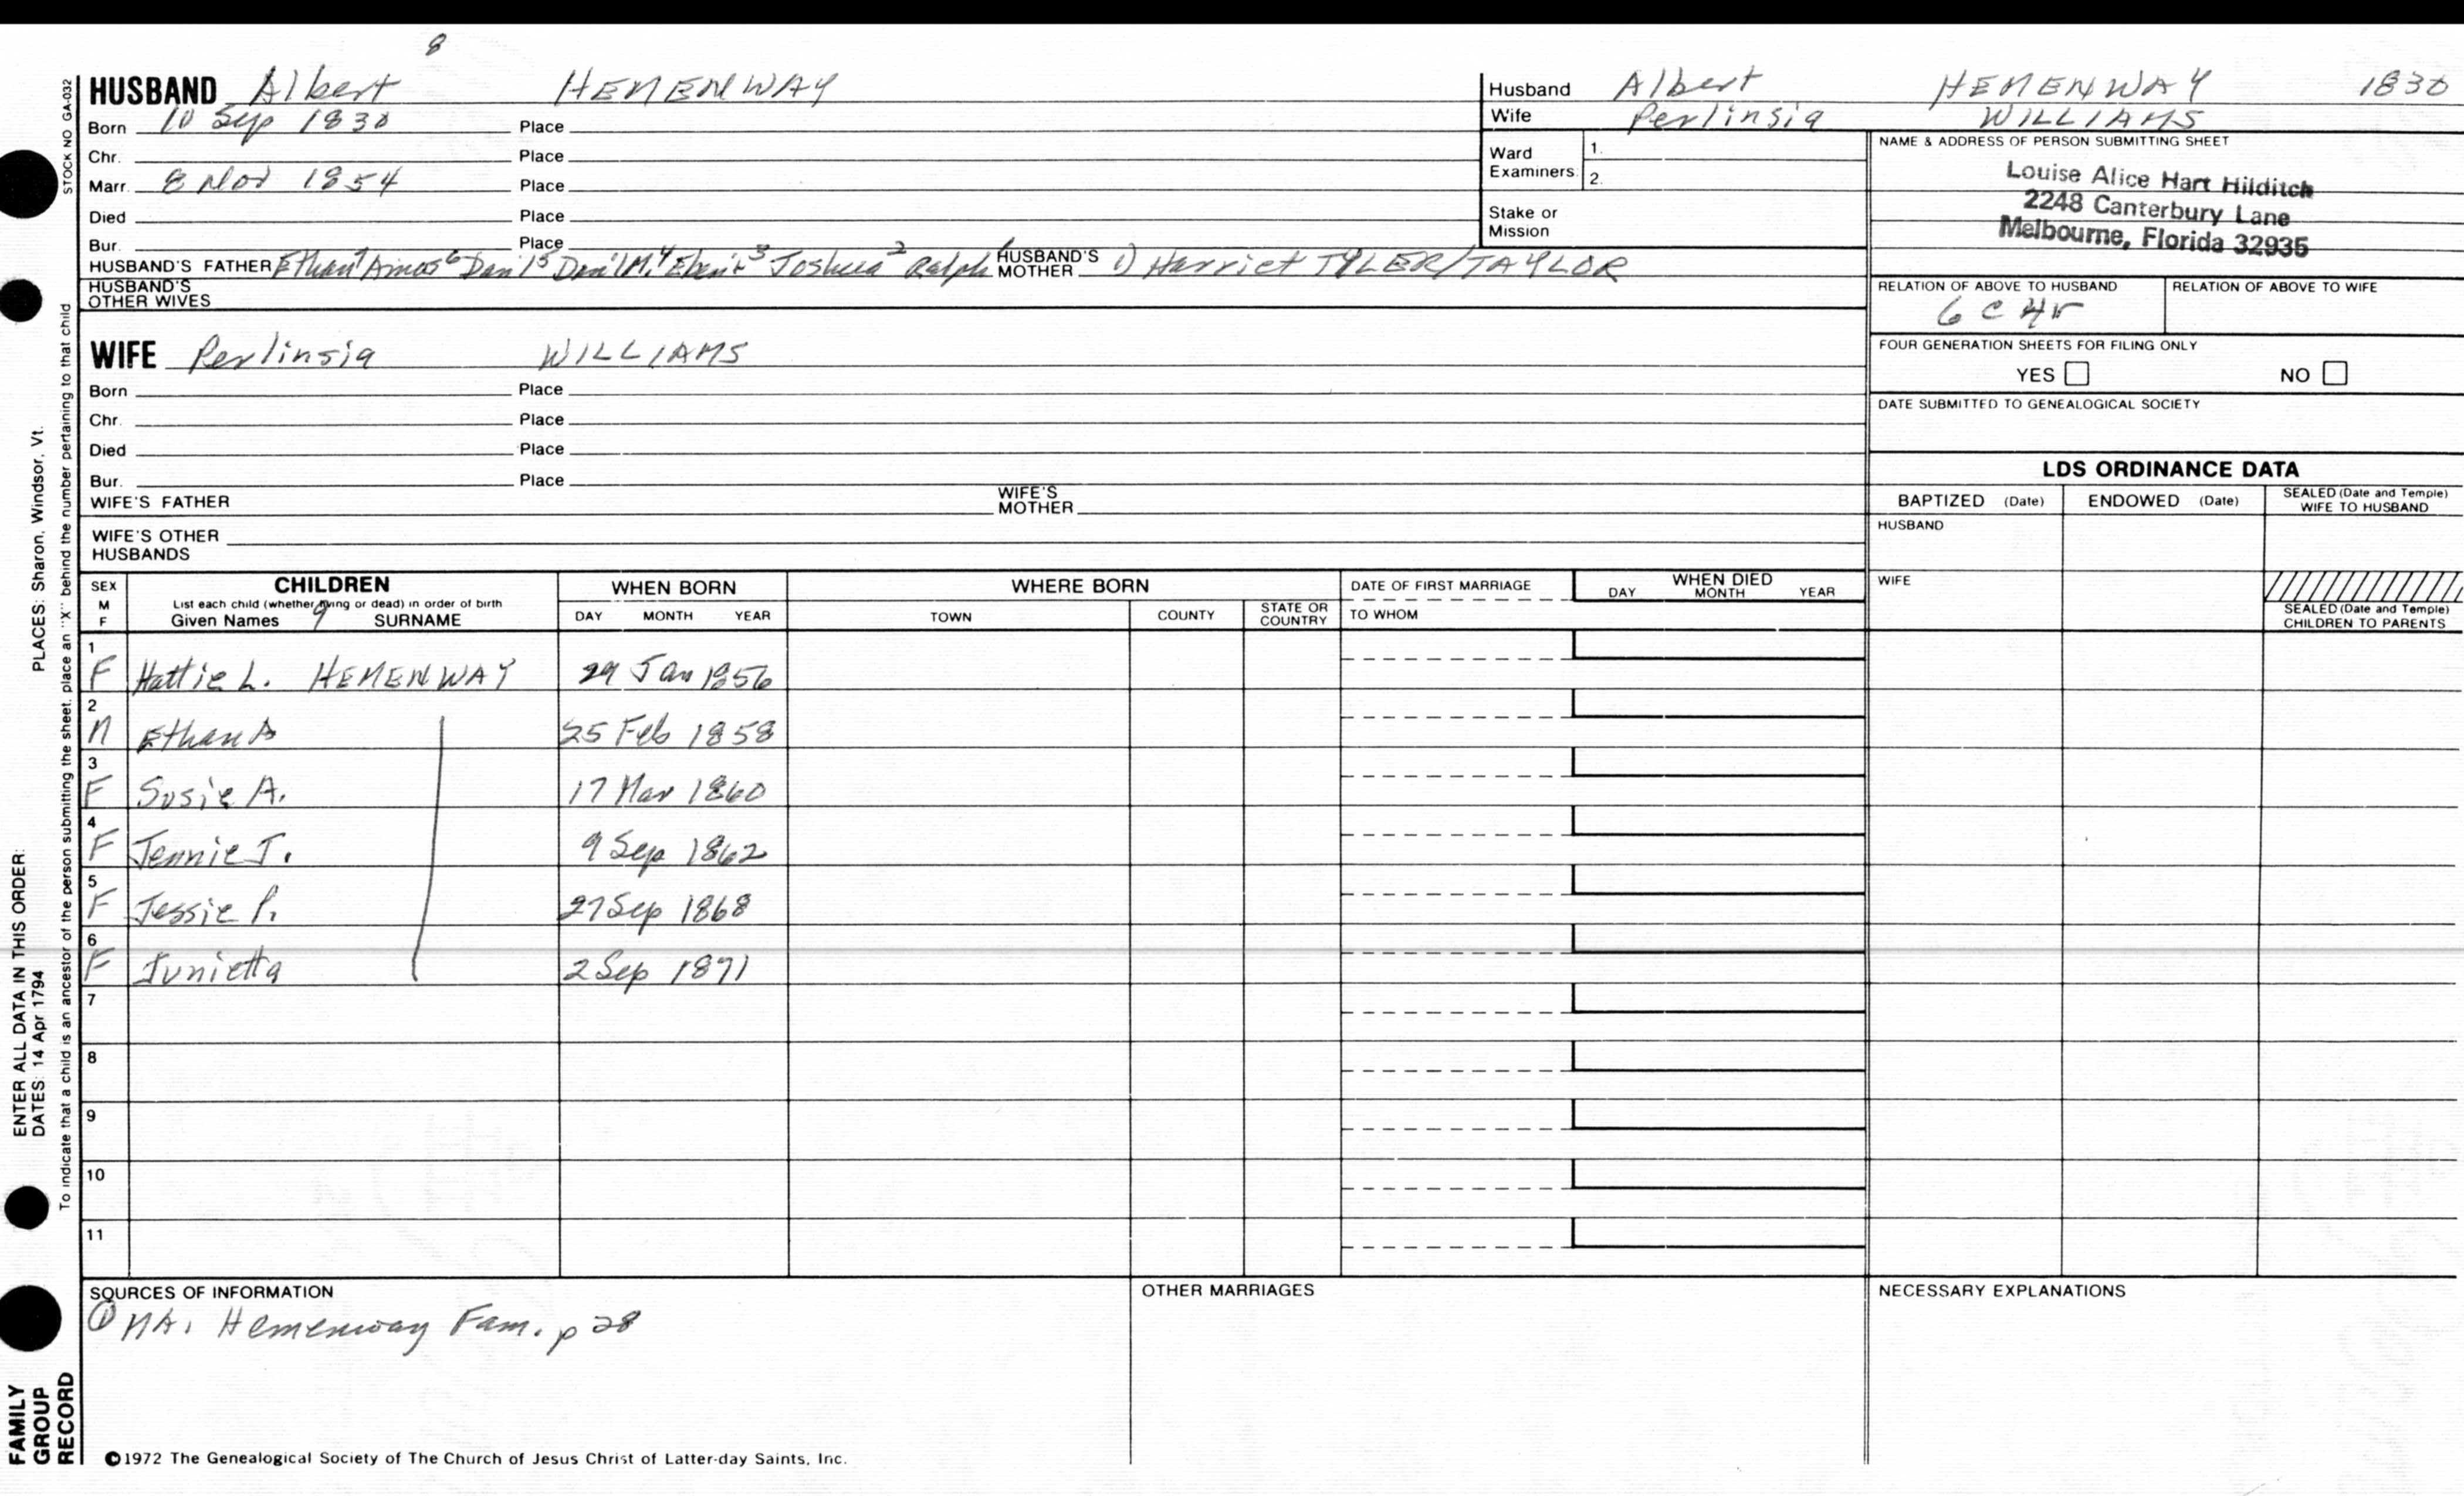 8
HUSBAND Albert HEMENWAY
Born 10 Sep 1830 Place
Chr. Place
Marr. 8 Nov 1854 Place
Died Place
Bur. Place
HUSBAND'S FATHER Ethan7 Amos6 Dan'l5 Dan'l M.4 Eben'r3 Joshua2 Ralph1 HUSBAND'S MOTHER 1) Harriet TYLER/TAYLOR
HUSBAND'S OTHER WIVES
WIFE Perlinsia WILLIAMS
Born Place
Chr. Place
Died Place
Bur. Place
WIFE'S FATHER WIFE'S MOTHER
WIFE'S OTHER HUSBANDS
Husband Albert HEMENWAY 1830
Wife Perlinsia WILLIAMS
Ward Examiners 1.
2.
Stake or Mission
NAME & ADDRESS OF PERSON SUBMITTING SHEET
Louise Alice Hart Hilditch
2248 Canterbury Lane
Melbourne, Florida 32935
RELATION OF ABOVE TO HUSBAND RELATION OF ABOVE TO WIFE
6 C 4r
FOUR GENERATION SHEETS FOR FILING ONLY
YES NO
DATE SUBMITTED TO GENEALOGICAL SOCIETY
LDS ORDINANCE DATA
BAPTIZED (Date) ENDOWED (Date) SEALED (Date and Temple) WIFE TO HUSBAND
HUSBAND
WIFE
SEALED (Date and Temple) CHILDREN TO PARENTS
SEX M F CHILDREN WHEN BORN WHERE BORN DATE OF FIRST MARRIAGE WHEN DIED
List each child (whether living or dead) in order of birth
Given Names 9 SURNAME DAY MONTH YEAR TOWN COUNTY STATE OR COUNTRY TO WHOM DAY MONTH YEAR
1 F Hattie L. HEMENWAY 29 Jan 1856
2 M Ethan A 25 Feb 1858
3 F Susie A. 17 Mar 1860
4 F Jennie J. 9 Sep 1862
5 F Jessie P. 27 Sep 1868
6 F Junietta 2 Sep 1871
7
8
9
10
11
SOURCES OF INFORMATION OTHER MARRIAGES NECESSARY EXPLANATIONS
① MA: Hemenway Fam. p 28
©1972 The Genealogical Society of The Church of Jesus Christ of Latter-day Saints, Inc.
STOCK NO GA-032
To indicate that a child is an ancestor of the person submitting the sheet, place an "X" behind the number pertaining to that child
ENTER ALL DATA IN THIS ORDER:
DATES: 14 Apr 1794 PLACES: Sharon, Windsor, Vt.
FAMILY
GROUP
RECORD